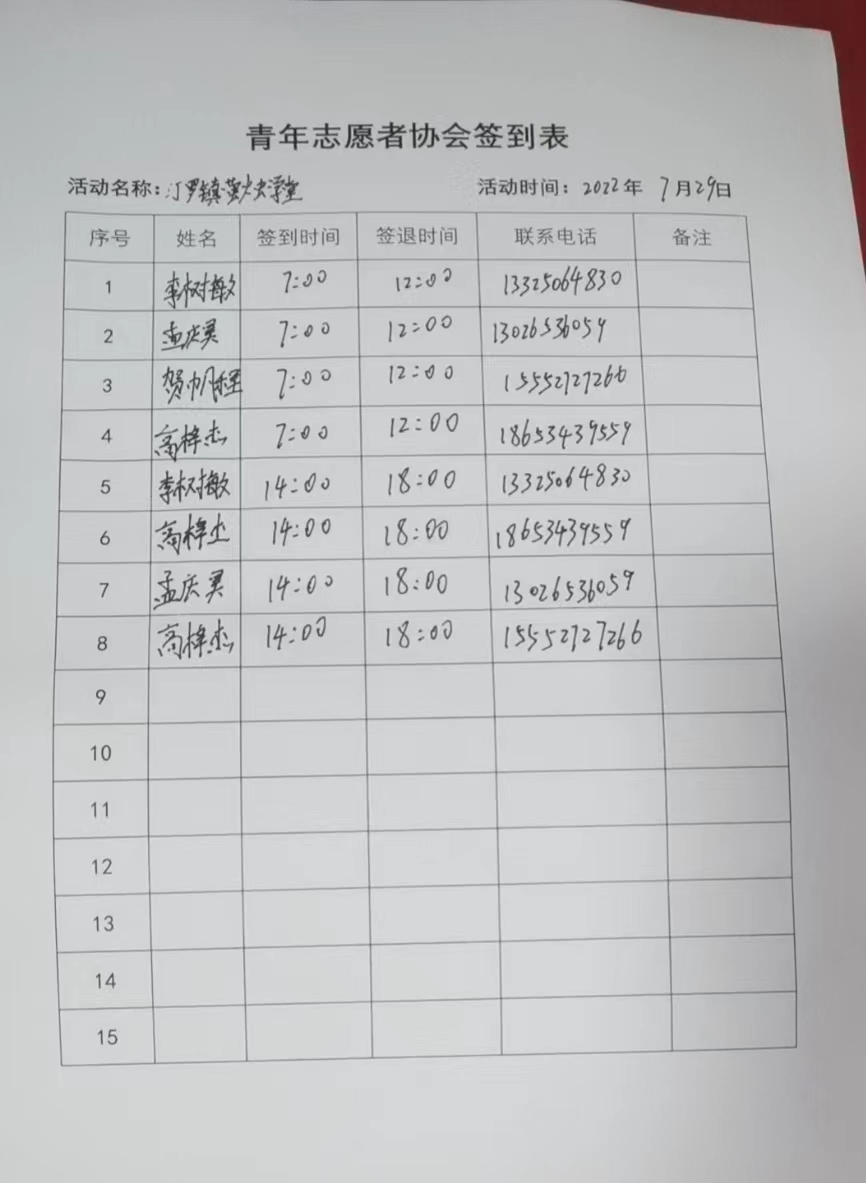 青年志愿者协会签到表
活动名称：汀罗镇萤火虫学堂 活动时间：2022年 7月29日
序号 姓名 签到时间 签退时间 联系电话 备注
1 李树敏 7:00 12:00 13325064830
2 孟庆昊 7:00 12:00 13026536059
3 贺帅程 7:00 12:00 15552727266
4 高梓杰 7:00 12:00 18653439559
5 李树敏 14:00 18:00 13325064830
6 高梓杰 14:00 18:00 18653439559
7 孟庆昊 14:00 18:00 13026536059
8 高梓杰 14:00 18:00 15552727266
9
10
11
12
13
14
15